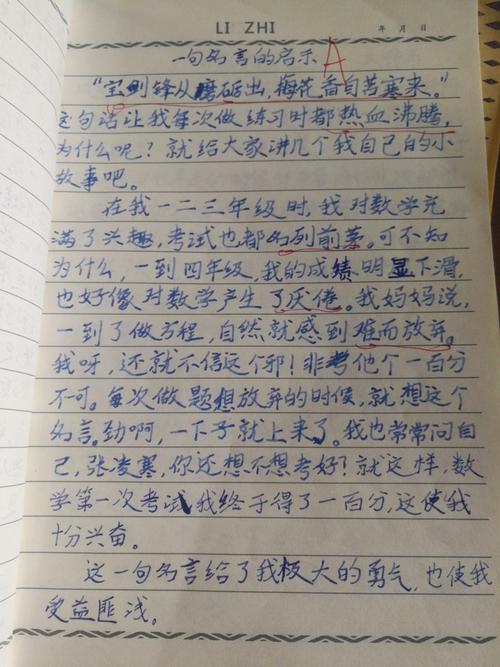 LI ZHI
年 月 日
一句名言的启示 A
“宝剑锋从磨砺出，梅花香自苦寒来。”
这句话让我每次做练习时都热血沸腾，
为什么呢？就给大家讲几个我自己的小
故事吧。
在我一二三年级时，我对数学充
满了兴趣，考试也都名列前茅。可不知
为什么，一到四年级，我的成绩明显下滑，
也好像对数学产生了厌倦。我妈妈说，
一到了做方程，自然就感到难而放弃。
我呀，还就不信这个邪！非考他个一百分
不可。每次做题想放弃的时候，就想这个
名言。劲啊，一下子就上来了。我也常常问自
己，张凌寒，你还想不想考好？就这样，数
学第一次考试我终于得了一百分，这使我
十分兴奋。
这一句名言给了我极大的勇气，也使我
受益匪浅。